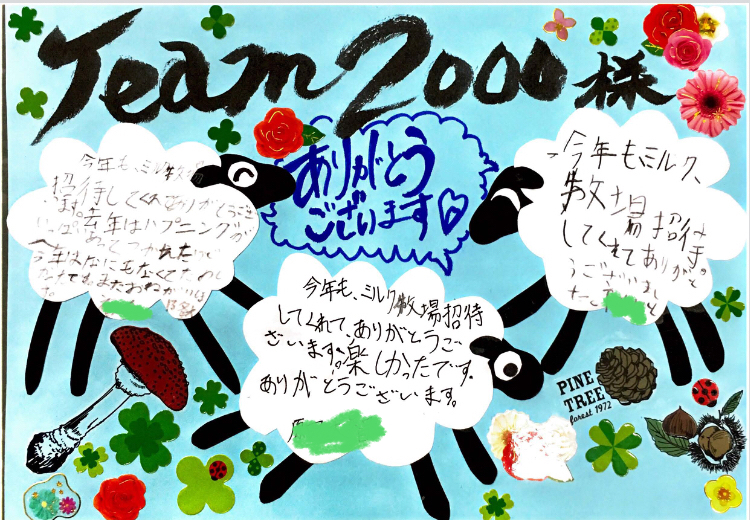 Team 2000 様
ありがとう
ございます
今年も、ミルク牧場
招待してくれてありがとうござい
ます。去年はハプニングが
いっぱい
あってつかれた
今年はなにもなくてたのし
またおねがい
今年も、ミルク
牧場招待
してくれてありがと
うございまし
た
今年も、ミルク牧場招待
してくれて、ありがとうご
ざいます。楽しかったです。
ありがとうございます。
PINE
TREE
forest 1972